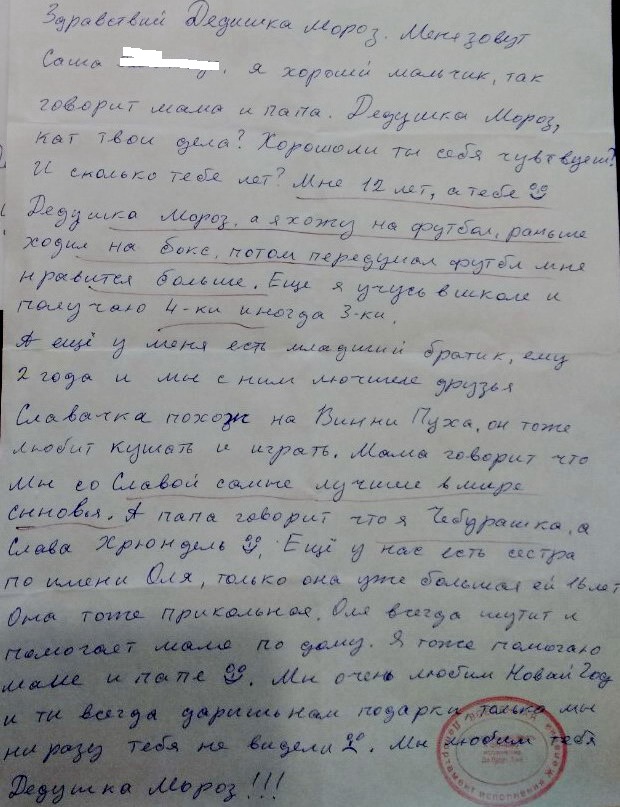 Здравствий Дедушка Мороз. Меня зовут
Саша я хороший мальчик, так
говорит мама и папа. Дедушка Мороз,
кат твои дела? Хорошо ли ты себя чувтвуеш?
И сколько тебе лет? Мне 12 лет, а тебе
Дедушка Мороз, а я хожу на футбол, раньше
ходил на бокс, потом передумал футбл мне
нравится больше. Еще я учусь в школе и
получаю 4-ки иногда 3-ки.
А ещё у меня есть младший братик, ему
2 года и мы с ним лючшие друзья
Славачка похож на Винни Пуха, он тоже
любит кушать и играть. Мама говорит что
мы со Славой самые лучшие в мире
сыновья. А папа говорит что я Чебурашка, а
Слава Хрюндель. Ещё у нас есть сестра
по имени Оля, только она уже большая ей 16 лет
Она тоже прикольная. Оля всегда шутит и
помогает маме по дому. Я тоже помогаю
маме и папе. Мы очень любим Новый Год
и ты всегда даришь нам подарки только мы
ни разу тебя не видели. Мы любим тебя
Дедушка Мороз!!!